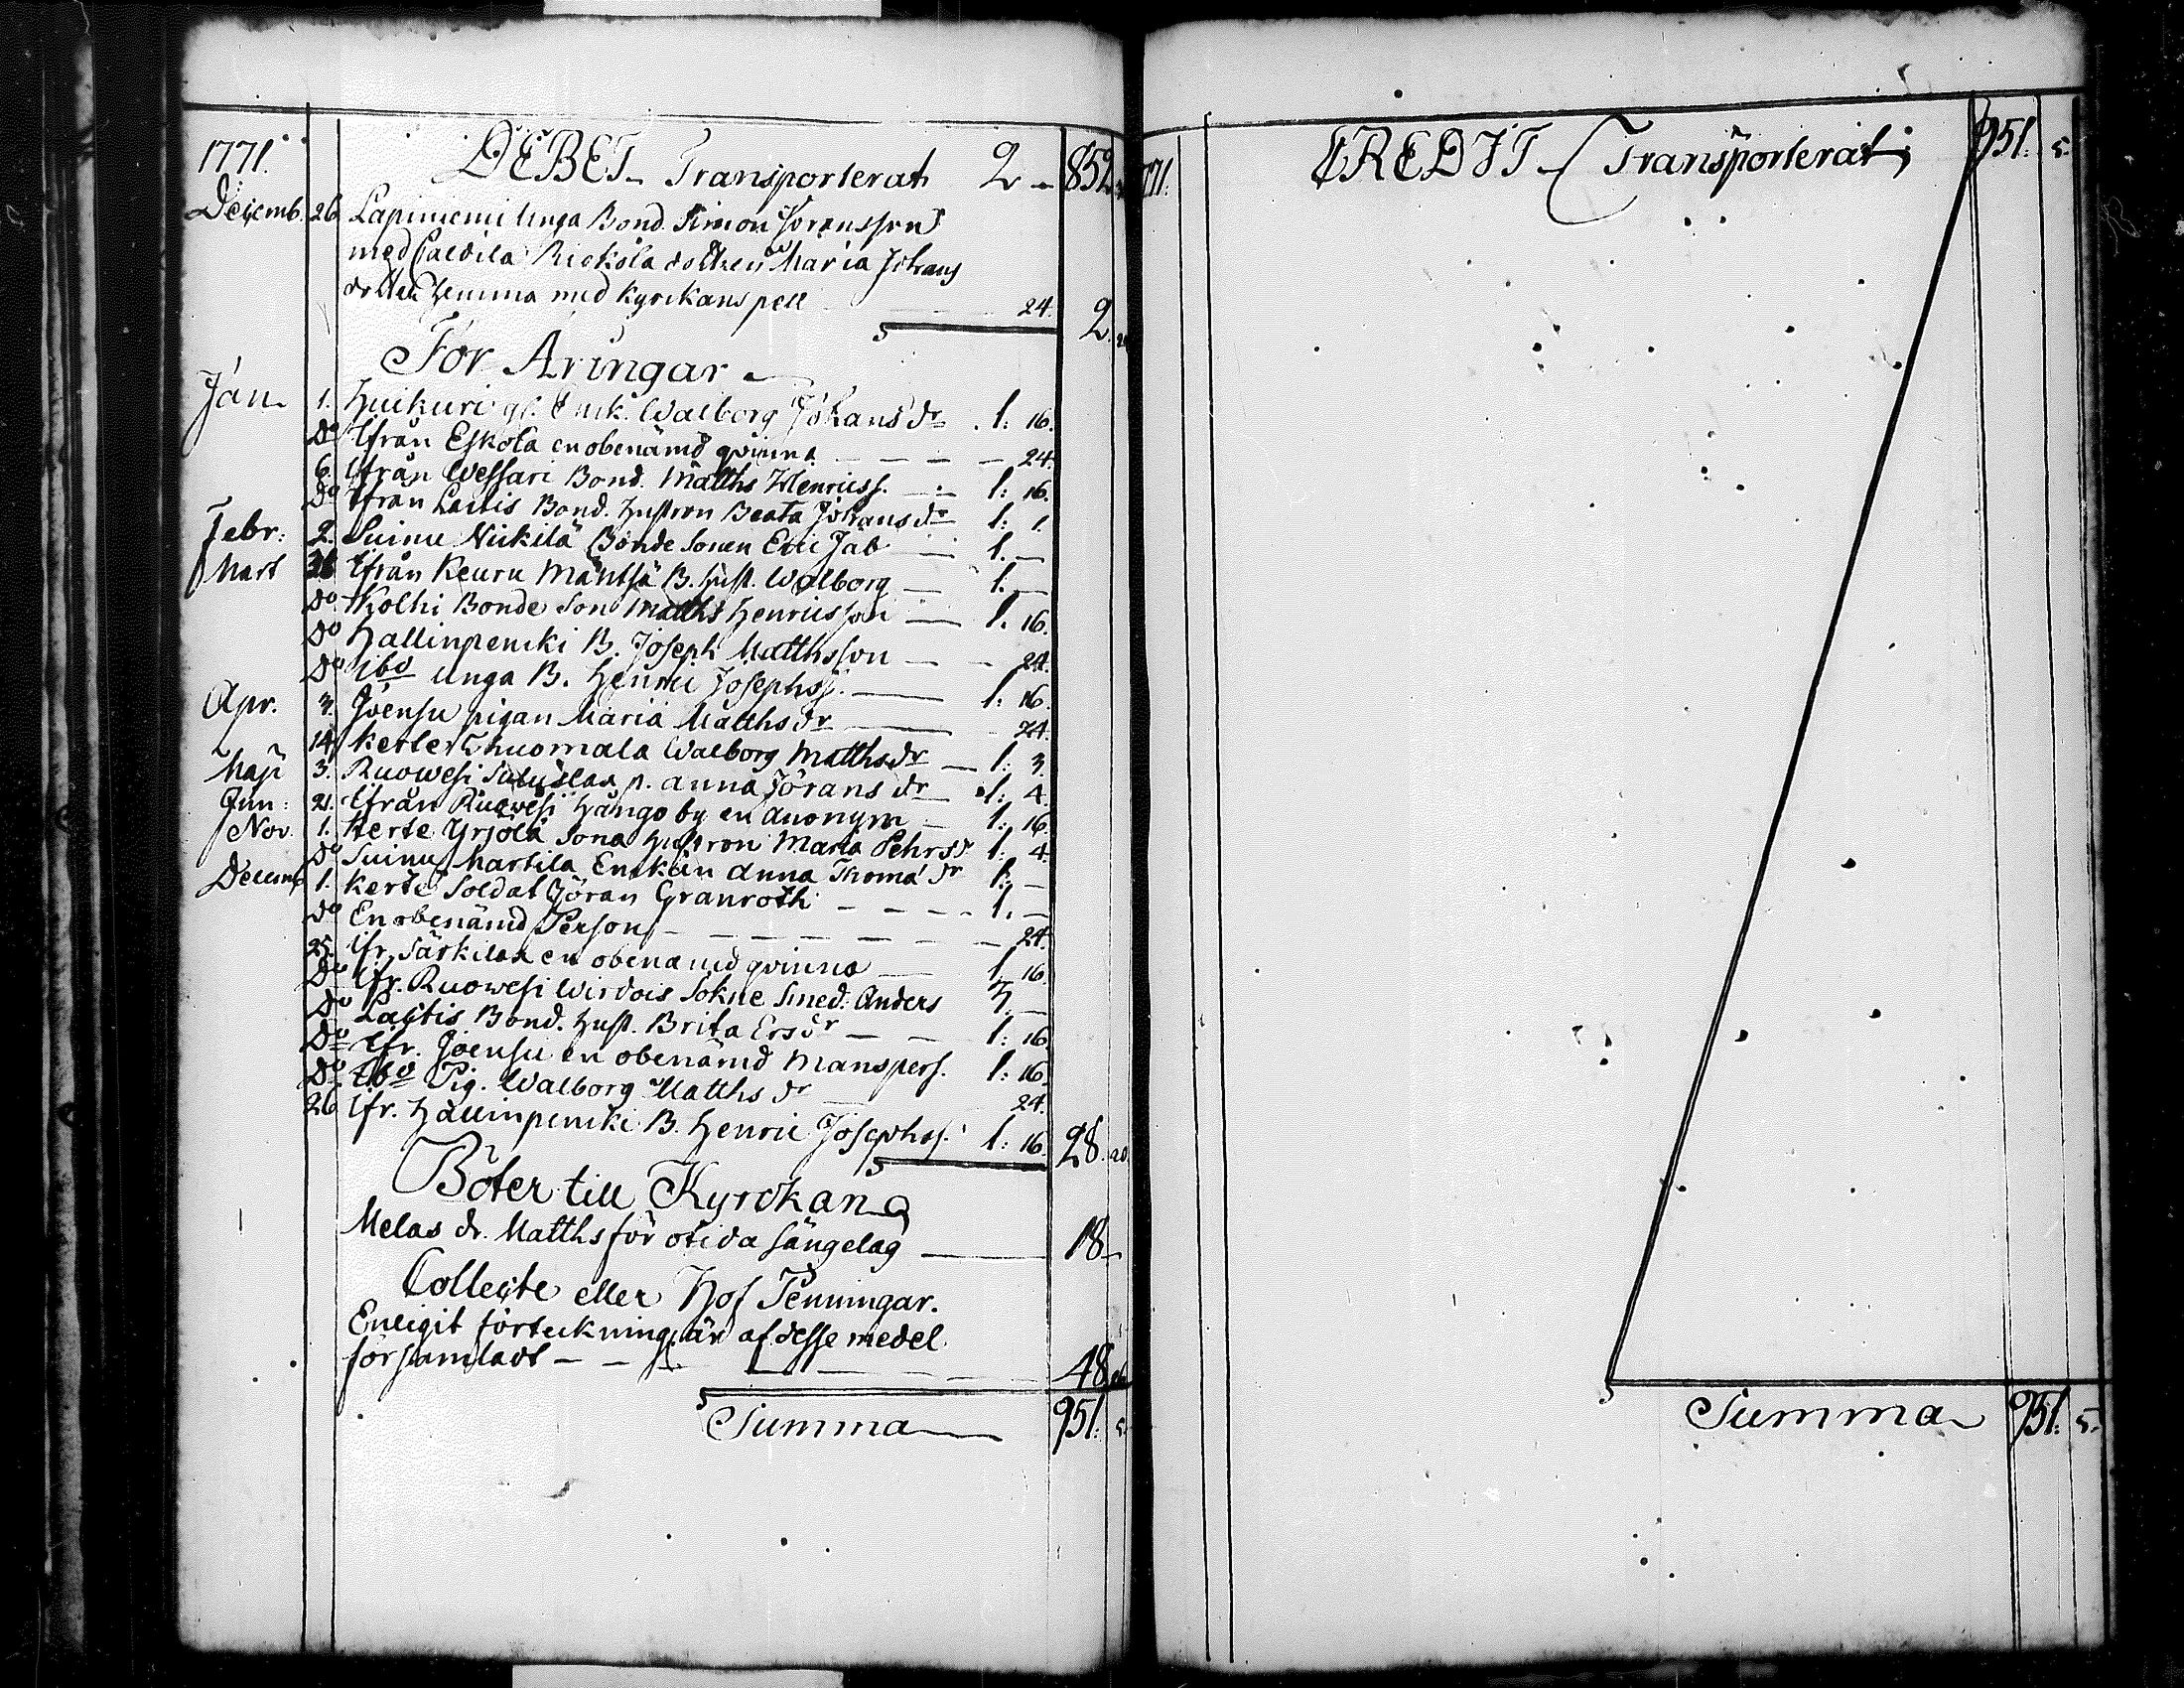 1771. DEBET Transporterat 2 852
Decemb. 26 Lapiniemi Unga Bond. Simon Joransson
med Rickola dottren Maria Johans
dotter hemma med kyrckans pell 24. 2.
För Aringar
Jan. 1. Huikuri gl. Enck. Walborg Johans dr. 1: 16.
Do Ifrån Eskola en obenämd qvinna 24.
6. Ifrån Wessari Bond. Matths Henrics. 1: 16.
Do Ifrån Laitis Bond. hustron Beata Johans dr 1: 1.
Febr: 2. Suinu Nickilä Bonde Sonen Eric Jab 1. —
Mart Ifrån Keuru Mäntsä B. hust. Walborg 1. —
Do Kolhi Bonde Son Matths Henricsson 1. 16.
Do Hallinpencki B. Joseph Matthsson 24.
Do ibd Unga B. Henric Josephss. 1: 16.
Apr. 3. Joensu pigan Maria Matths dr 24.
14. Kerte Thuomala Walborg Matths dr 1: 3.
Maji 3. Ruowesi p. Anna Jörans dr 1: 4.
Jun: 21. Ifrån Ruowesi Hango by en anonym 1: 16.
Nov. 1. Kerte Yrjölä Sona hustron Maria Pehrs d 1: 4.
Do Suinu Martila Enckan Anna Thoma dr 1: —
Decemb 1. Kerte Soldat Jöran Granroth 1. —
Do En obenämd Person 24.
25. ifr. Särkilax en obenämd qvinna 1. 16.
Do ifr. Ruowesi Wirdois Sokne Smed. Anders
Do Laitis Bond. hust. Brita Ers dr 1: 16.
Do ifr. Joensu en obenämd Manspers. 1: 16.
Do ibd Pig. Walborg Matths dr 24.
26 ifr. Hallinpencki B. Henric Josephss. 1: 16. 28. 20.
Böter till Kyrckan
Melas dr. Matths för otida sängelag 18 —
Collecte eller Hof Penningar.
Enligit förteckning är af desse medel
församladt 48
Summa 951. 5.
1771. CREDIT Transporterat 951. 5.
Summa 951. 5.